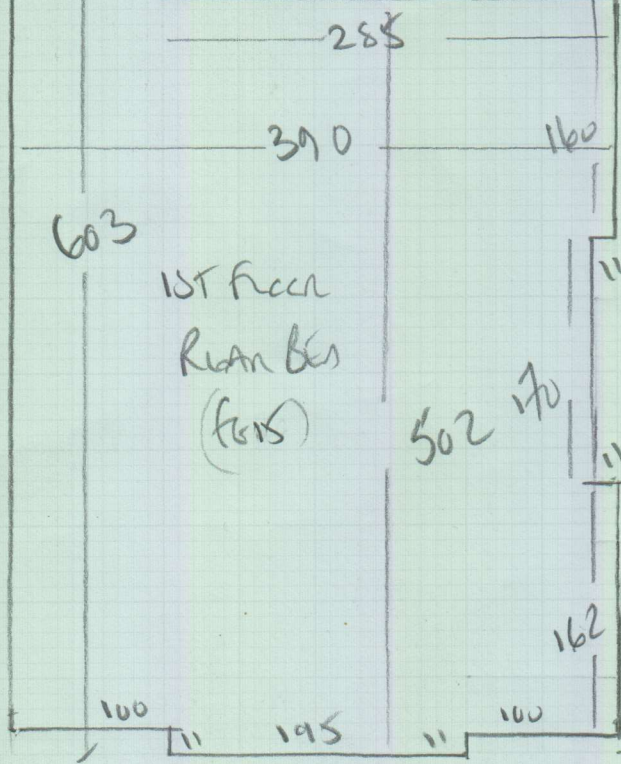 285
390
160
603
11
1ST FLOOR
REAR BED
170
502
11
162
100
11
195
11
100